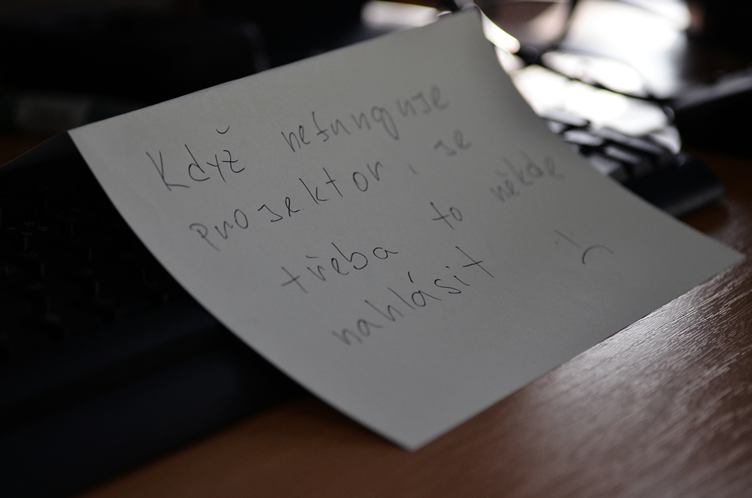 Když nefunguje
projektor, je
třeba to někde
nahlásit :(